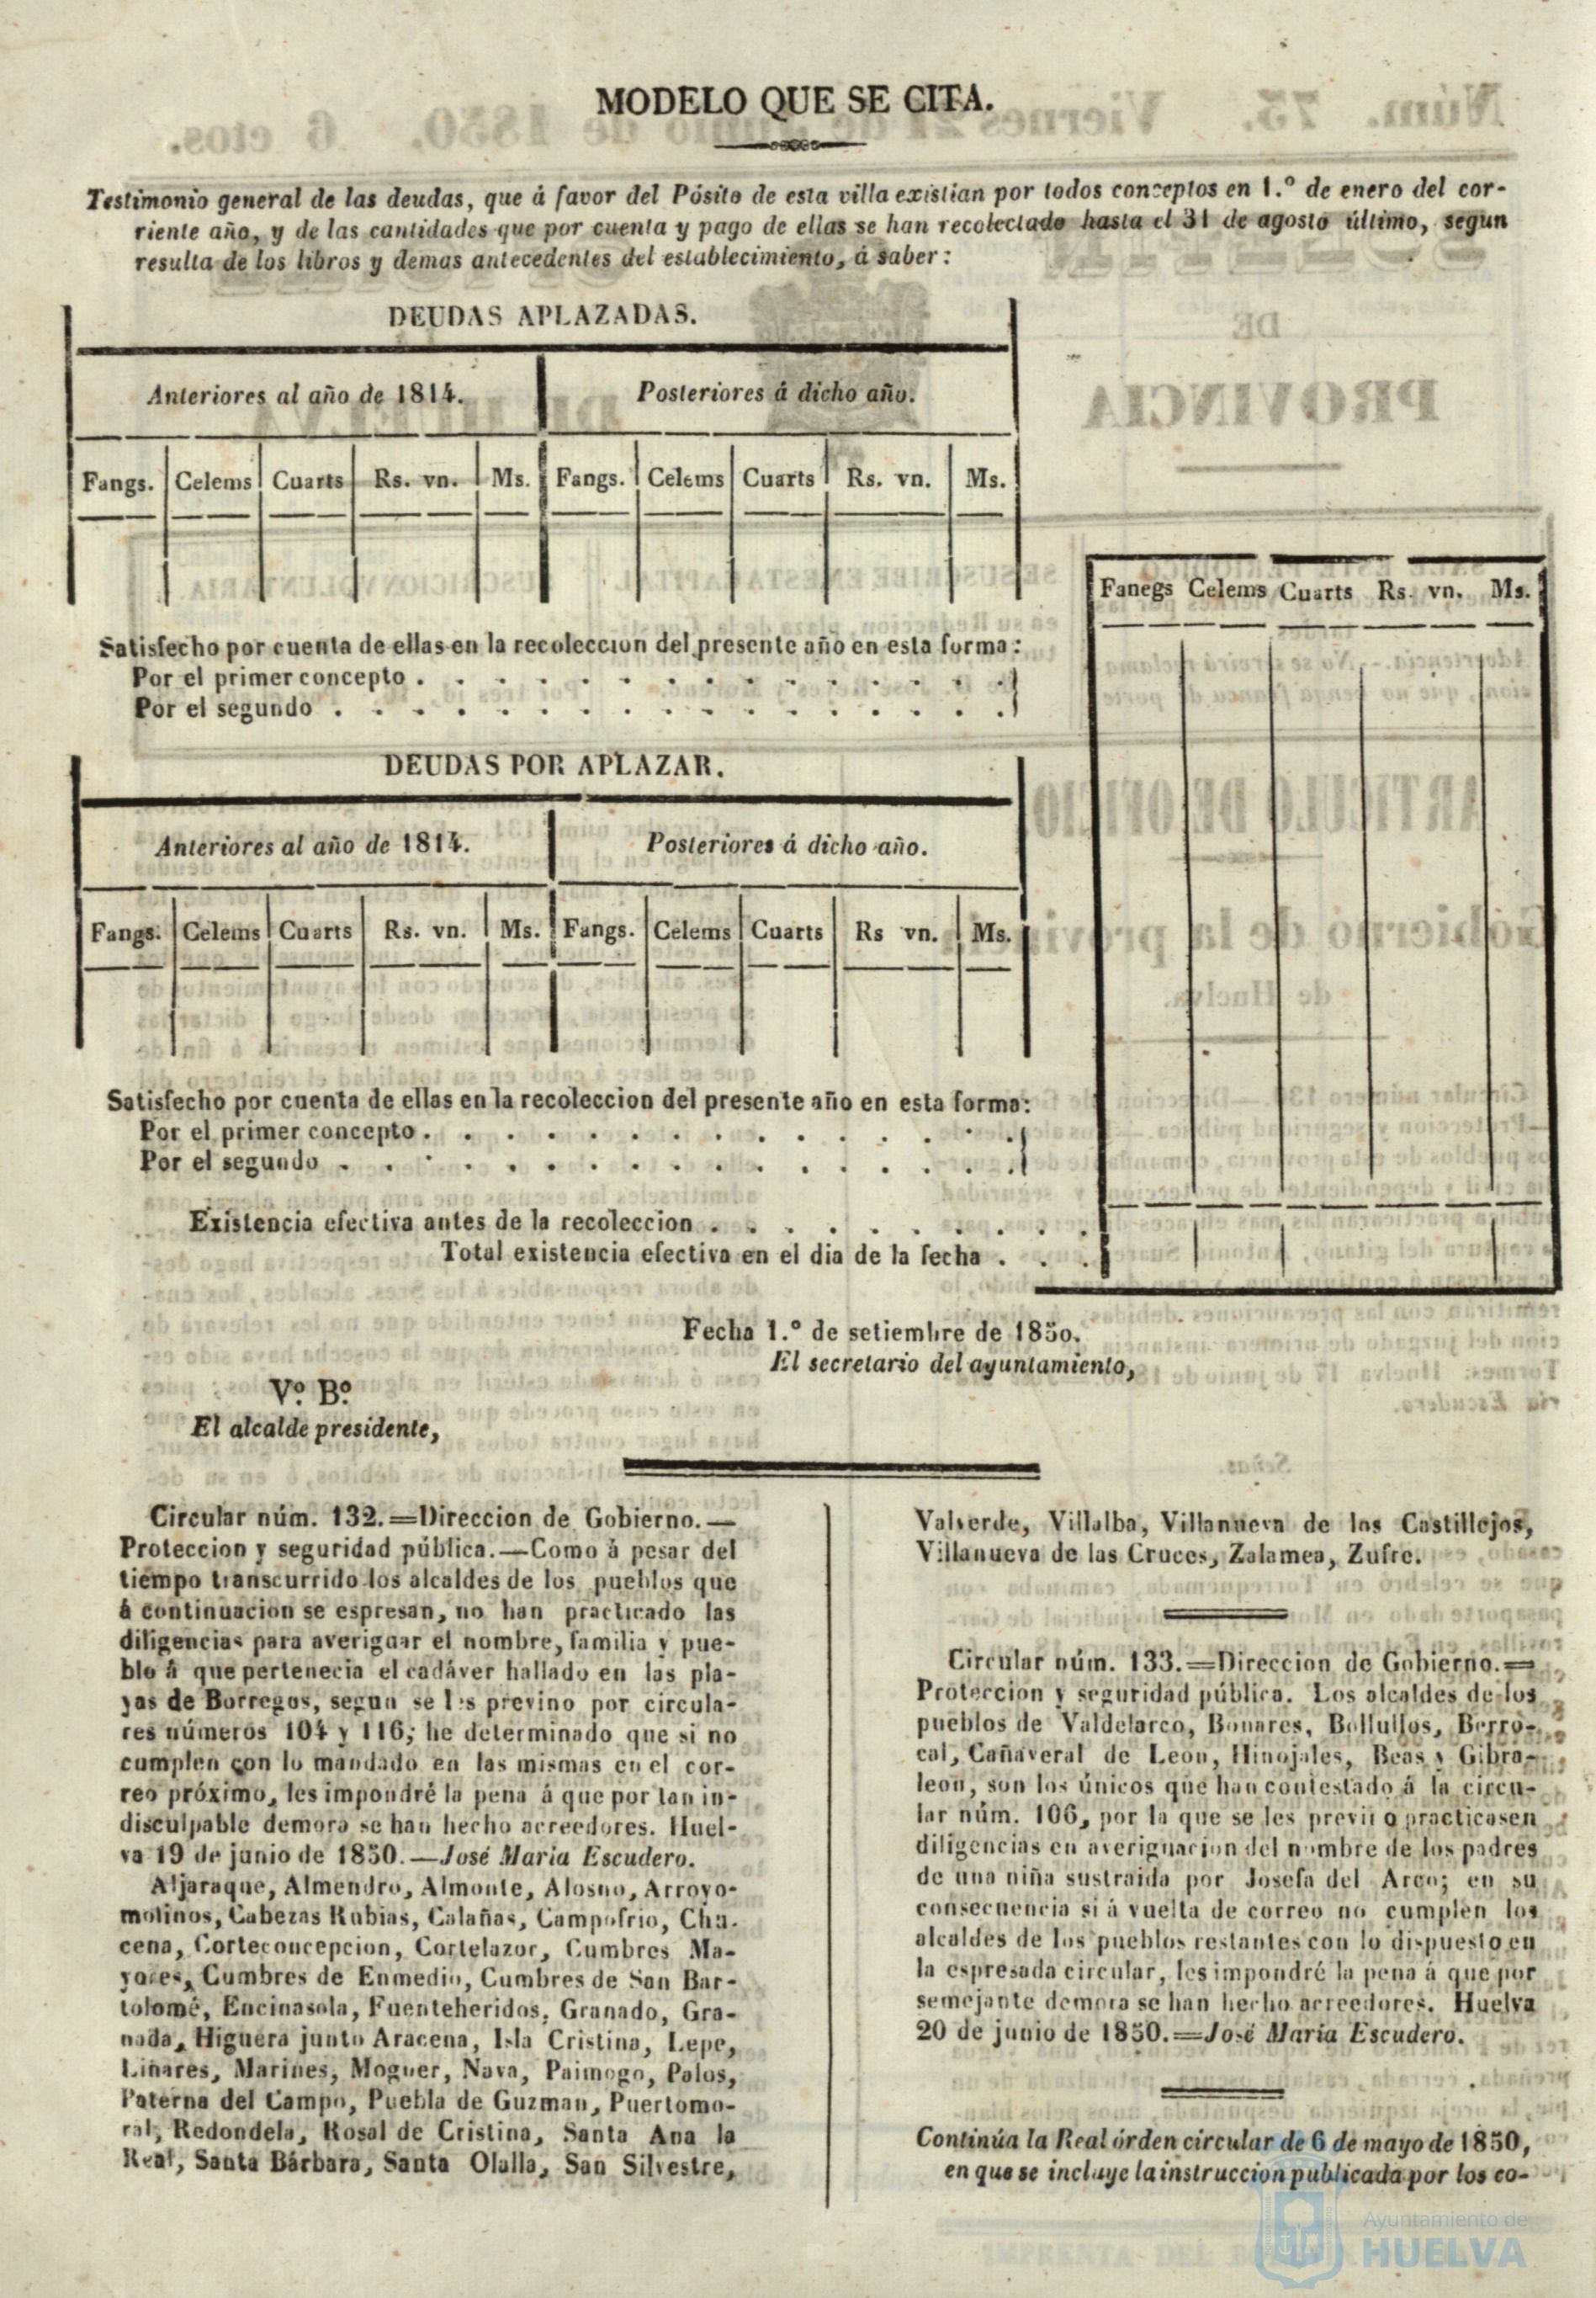 MODELO QUE SE CITA.
Testimonio general de las deudas, que á favor del Pósito de esta villa existian por todos conceptos en 1.º de enero del cor-
riente año, y de las cantidades que por cuenta y pago de ellas se han recolectado hasta el 31 de agosto último, segun
resulta de los libros y demas antecedentes del establecimiento, á saber:
DEUDAS APLAZADAS.
Anteriores al año de 1814. Posteriores á dicho año.
Fangs. Celems Cuarts Rs. vn. Ms. Fangs. Celems Cuarts Rs. vn. Ms.
Fanegs Celems Cuarts Rs. vn. Ms.
Satisfecho por cuenta de ellas en la recoleccion del presente año en esta forma:
Por el primer concepto . . . . . . . . . . . . . . .
Por el segundo . . . . . . . . . . . . . . . . .
DEUDAS POR APLAZAR.
Anteriores al año de 1814. Posteriores á dicho año.
Fangs. Celems Cuarts Rs. vn. Ms. Fangs. Celems Cuarts Rs vn. Ms.
Satisfecho por cuenta de ellas en la recoleccion del presente año en esta forma:
Por el primer concepto . . . . . . . . . . . . . . .
Por el segundo . . . . . . . . . . . . . . . . .
Existencia efectiva antes de la recoleccion . . . . . . . . . .
Total existencia efectiva en el dia de la fecha . . .
Fecha 1.º de setiembre de 1850.
El secretario del ayuntamiento,
Vº. Bº.
El alcalde presidente,
Circular núm. 132.=Direccion de Gobierno.—
Proteccion y seguridad pública.—Como á pesar del
tiempo transcurrido los alcaldes de los pueblos que
á continuacion se espresan, no han practicado las
diligencias para averiguar el nombre, familia y pue-
blo á que pertenecia el cadáver hallado en las pla-
yas de Borregos, segun se les previno por circula-
res números 104 y 116; he determinado que si no
cumplen con lo mandado en las mismas en el cor-
reo próximo, les impondré la pena á que por tan in-
disculpable demora se han hecho acreedores. Huel-
va 19 de junio de 1850.—José Maria Escudero.
Aljaraque, Almendro, Almonte, Alosno, Arroyo-
molinos, Cabezas Rubias, Calañas, Campofrio, Cha-
cena, Corteconcepcion, Cortelazor, Cumbres Ma-
yores, Cumbres de Enmedio, Cumbres de San Bar-
tolomé, Encinasola, Fuenteheridos, Granado, Gra-
nada, Higuera junto Aracena, Isla Cristina, Lepe,
Linares, Marines, Moguer, Nava, Paimogo, Palos,
Paterna del Campo, Puebla de Guzman, Puertomo-
ral, Redondela, Rosal de Cristina, Santa Ana la
Real, Santa Bárbara, Santa Olalla, San Silvestre,
Valverde, Villalba, Villanueva de los Castillejos,
Villanueva de las Cruces, Zalamea, Zufre.
Circular núm. 133.=Direccion de Gobierno.=
Proteccion y seguridad pública. Los alcaldes de los
pueblos de Valdelarco, Bonares, Bollullos, Berro-
cal, Cañaveral de Leon, Hinojales, Beas y Gibra-
leon, son los únicos que han contestado á la circu-
lar núm. 106, por la que se les previno practicasen
diligencias en averiguacion del nombre de los padres
de una niña sustraida por Josefa del Arco; en su
consecuencia si á vuelta de correo no cumplen los
alcaldes de los pueblos restantes con lo dispuesto en
la espresada circular, les impondré la pena á que por
semejante demora se han hecho acreedores. Huelva
20 de junio de 1850.=José Maria Escudero.
Continúa la Real órden circular de 6 de mayo de 1850,
en que se incluye la instruccion publicada por los co-
Ayuntamiento de
HUELVA